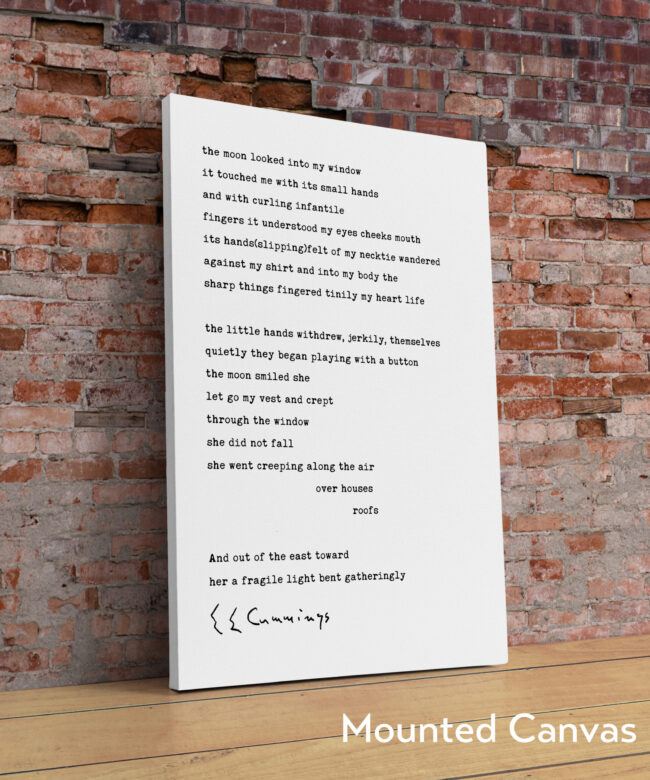 the moon looked into my window
it touched me with its small hands
and with curling infantile
fingers it understood my eyes cheeks mouth
its hands(slipping)felt of my necktie wandered
against my shirt and into my body the
sharp things fingered tinily my heart life
the little hands withdrew, jerkily, themselves
quietly they began playing with a button
the moon smiled she
let go my vest and crept
through the window
she did not fall
she went creeping along the air
over houses
roofs
And out of the east toward
her a fragile light bent gatheringly
E E Cummings
Mounted Canvas